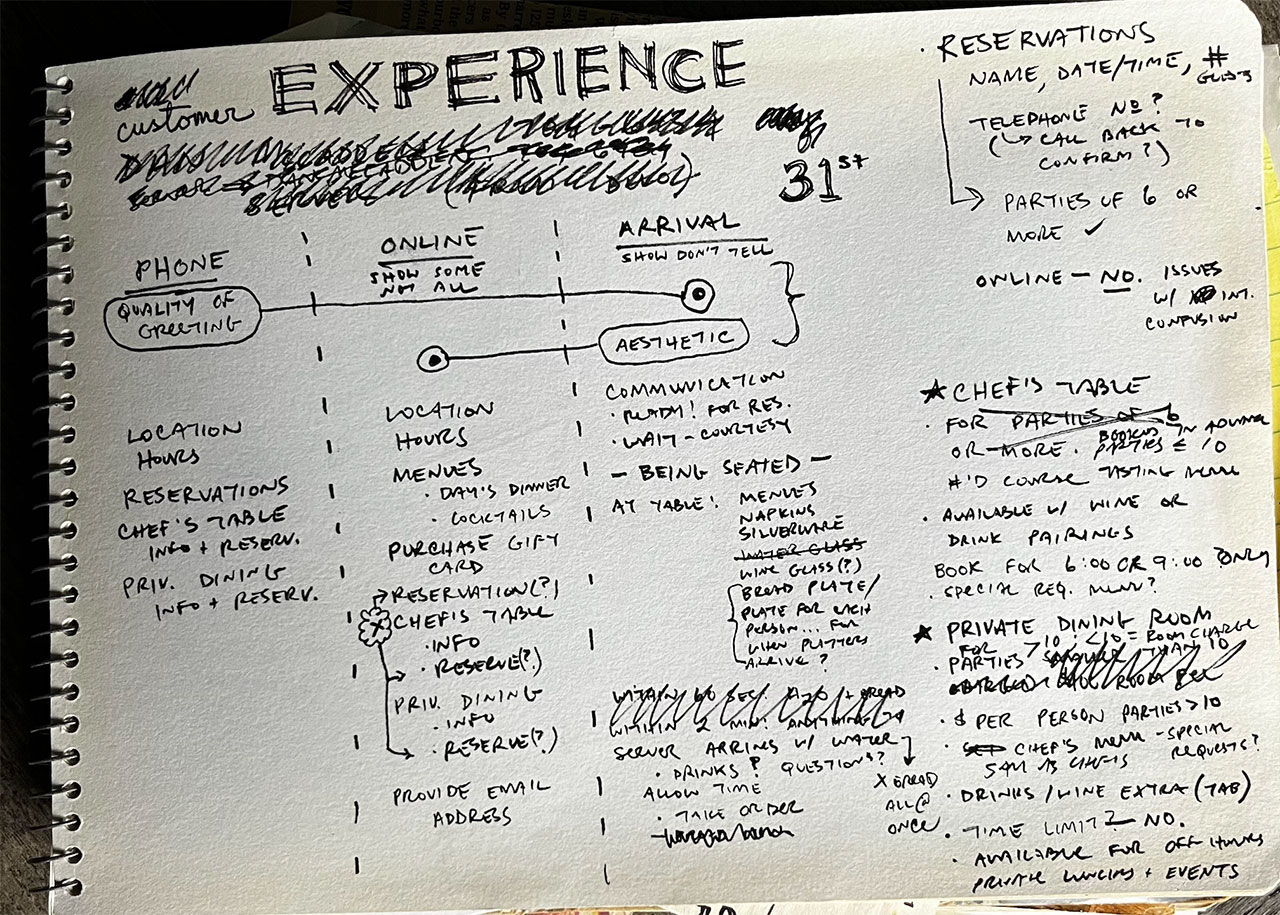 EXPERIENCE
customer
31st
PHONE
QUALITY OF
GREETING
LOCATION
HOURS
RESERVATIONS
CHEF'S TABLE
INFO + RESERV.
PRIV. DINING
INFO + RESERV.
ONLINE
SHOW SOME
NOT ALL
LOCATION
HOURS
MENUES
· DAY'S DINNER
· COCKTAILS
PURCHASE GIFT
CARD
RESERVATION(?)
CHEF'S TABLE
· INFO
· RESERVE(?)
PRIV. DINING
· INFO
· RESERVE(?)
PROVIDE EMAIL
ADDRESS
ARRIVAL
SHOW DON'T TELL
AESTHETIC
COMMUNICATION
· READY! FOR RES.
· WAIT - COURTESY
— BEING SEATED —
AT TABLE: MENUES
NAPKINS
SILVERWARE
WATER GLASS
WINE GLASS(?)
BREAD PLATE/
PLATE FOR EACH
PERSON... FOR
WHEN PLATTERS
ARRIVE?
WITHIN 60 SEC. BREAD
WITHIN 2 MIN: ANYTHING
SERVER ARRIVES W/ WATER
· DRINKS? QUESTIONS?
ALLOW TIME
· TAKE ORDER
X BREAD
ALL @
ONCE
· RESERVATIONS
NAME, DATE/TIME, #
GUESTS
TELEPHONE NO?
(↳ CALL BACK TO
CONFIRM?)
→ PARTIES OF 6 OR
MORE ✓
ONLINE — NO. ISSUES
W/ INT.
CONFUSION
★ CHEF'S TABLE
· FOR PARTIES OF 6
OR MORE. BOOKED IN ADVANCE
PARTIES ≤ 10
#'D COURSE TASTING MENU
· AVAILABLE W/ WINE OR
DRINK PAIRINGS
BOOK FOR 6:00 OR 9:00 ONLY
· SPECIAL REQ. MENU?
★ PRIVATE DINING ROOM
FOR >10; <10 = ROOM CHARGE
· PARTIES THAN 10
· $ PER PERSON PARTIES >10
· CHEF'S MENU - SPECIAL
REQUESTS?
SAME AS CHEF'S
· DRINKS / WINE EXTRA (TAB)
· TIME LIMIT? — NO.
· AVAILABLE FOR OFF HOURS
PRIVATE LUNCHES + EVENTS